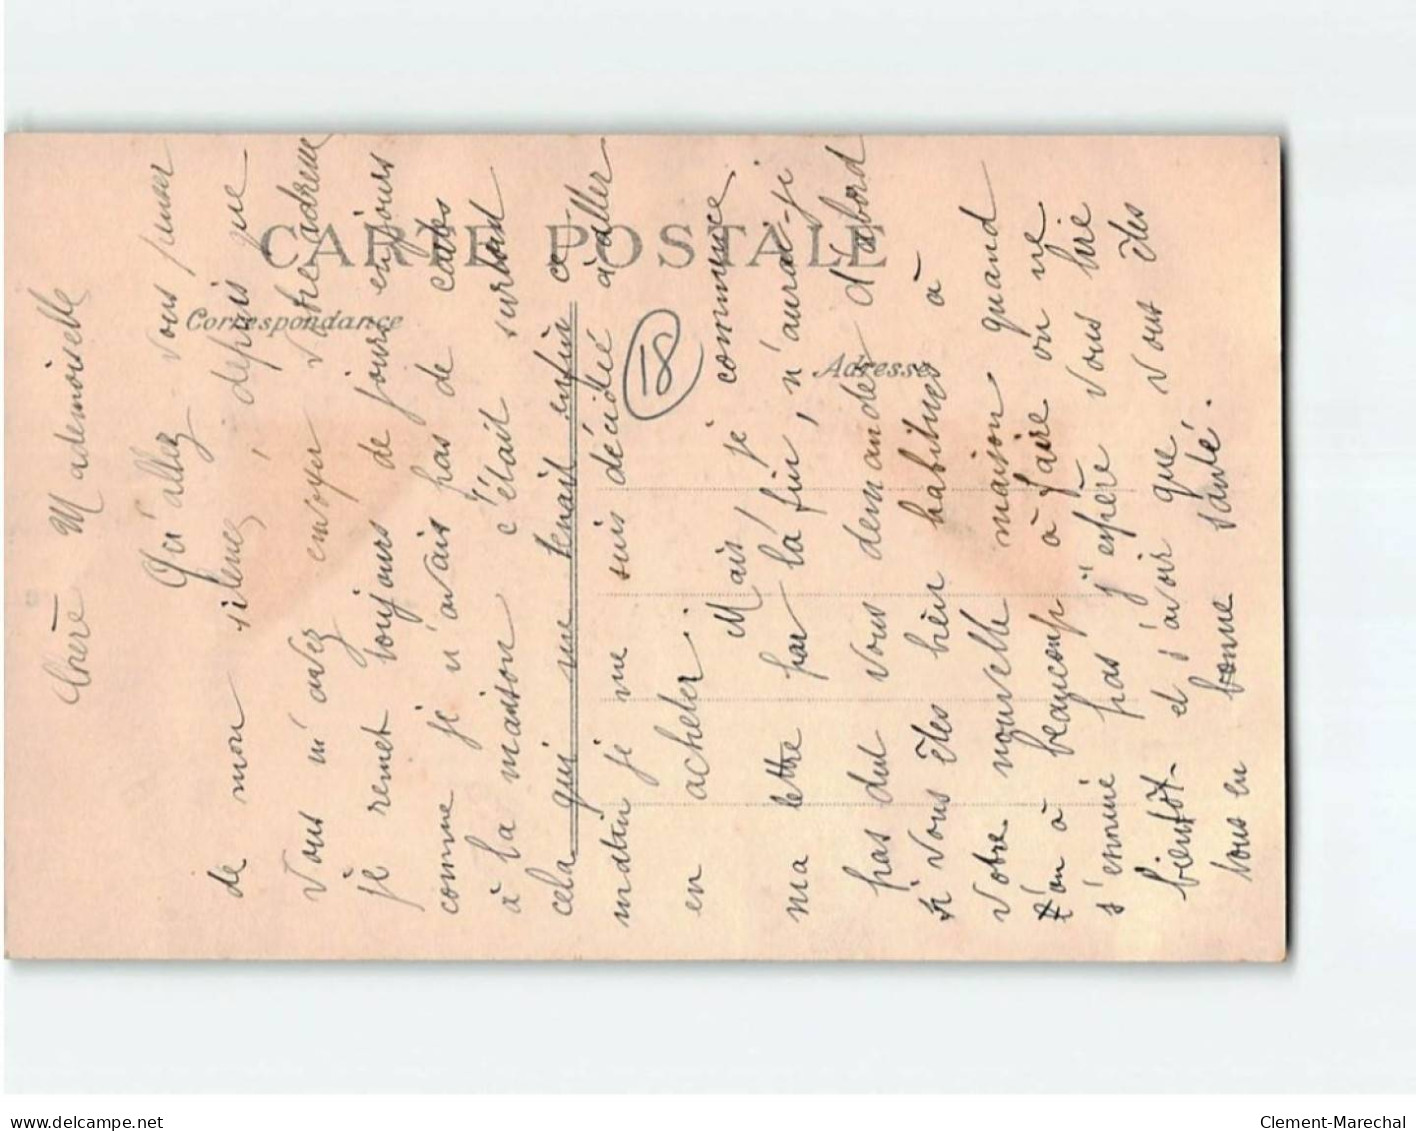 CARTE POSTALE
Correspondance
Adresse
18
Chère Mademoiselle
Qu'allez vous penser
de mon silence, depuis que
vous m'avez envoyer votre adresse
je remet toujours de jours en jours
comme je n'avais pas de cartes
à la maison c'était surtout
cela qui me tenait enfin ce
matin je me suis décidée à aller
en acheter.
Mais! je commence
ma lettre par la fin, n'aurai-je
pas dut vous demander d'abord
si vous êtes bien habituer à
votre nouvelle maison quand
l'on à beaucoup à faire on ne
s'ennuie pas j'espère vous lire
bientôt et s'avoir que vous êtes
tous en bonne santé.
Clement-Marechal
www.delcampe.net